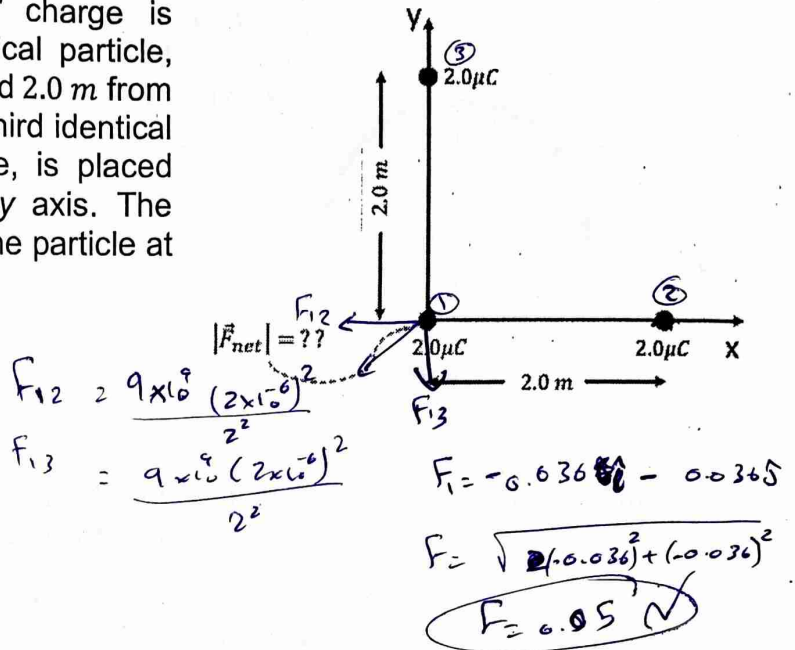 charge is
cal particle,
d 2.0 m from
hird identical
e, is placed
y axis. The
he particle at
y
③
2.0μC
2.0 m
F12
①
②
|F⃗net| = ??
2.0μC
2.0μC X
2.0 m
F13
F12 = 9×10⁹ (2×10⁻⁶)²
2²
F13 = 9×10⁹ (2×10⁻⁶)²
2²
F₁ = -0.036 î - 0.036 ĵ
F = √(-0.036)² + (-0.036)²
F = 0.05 N